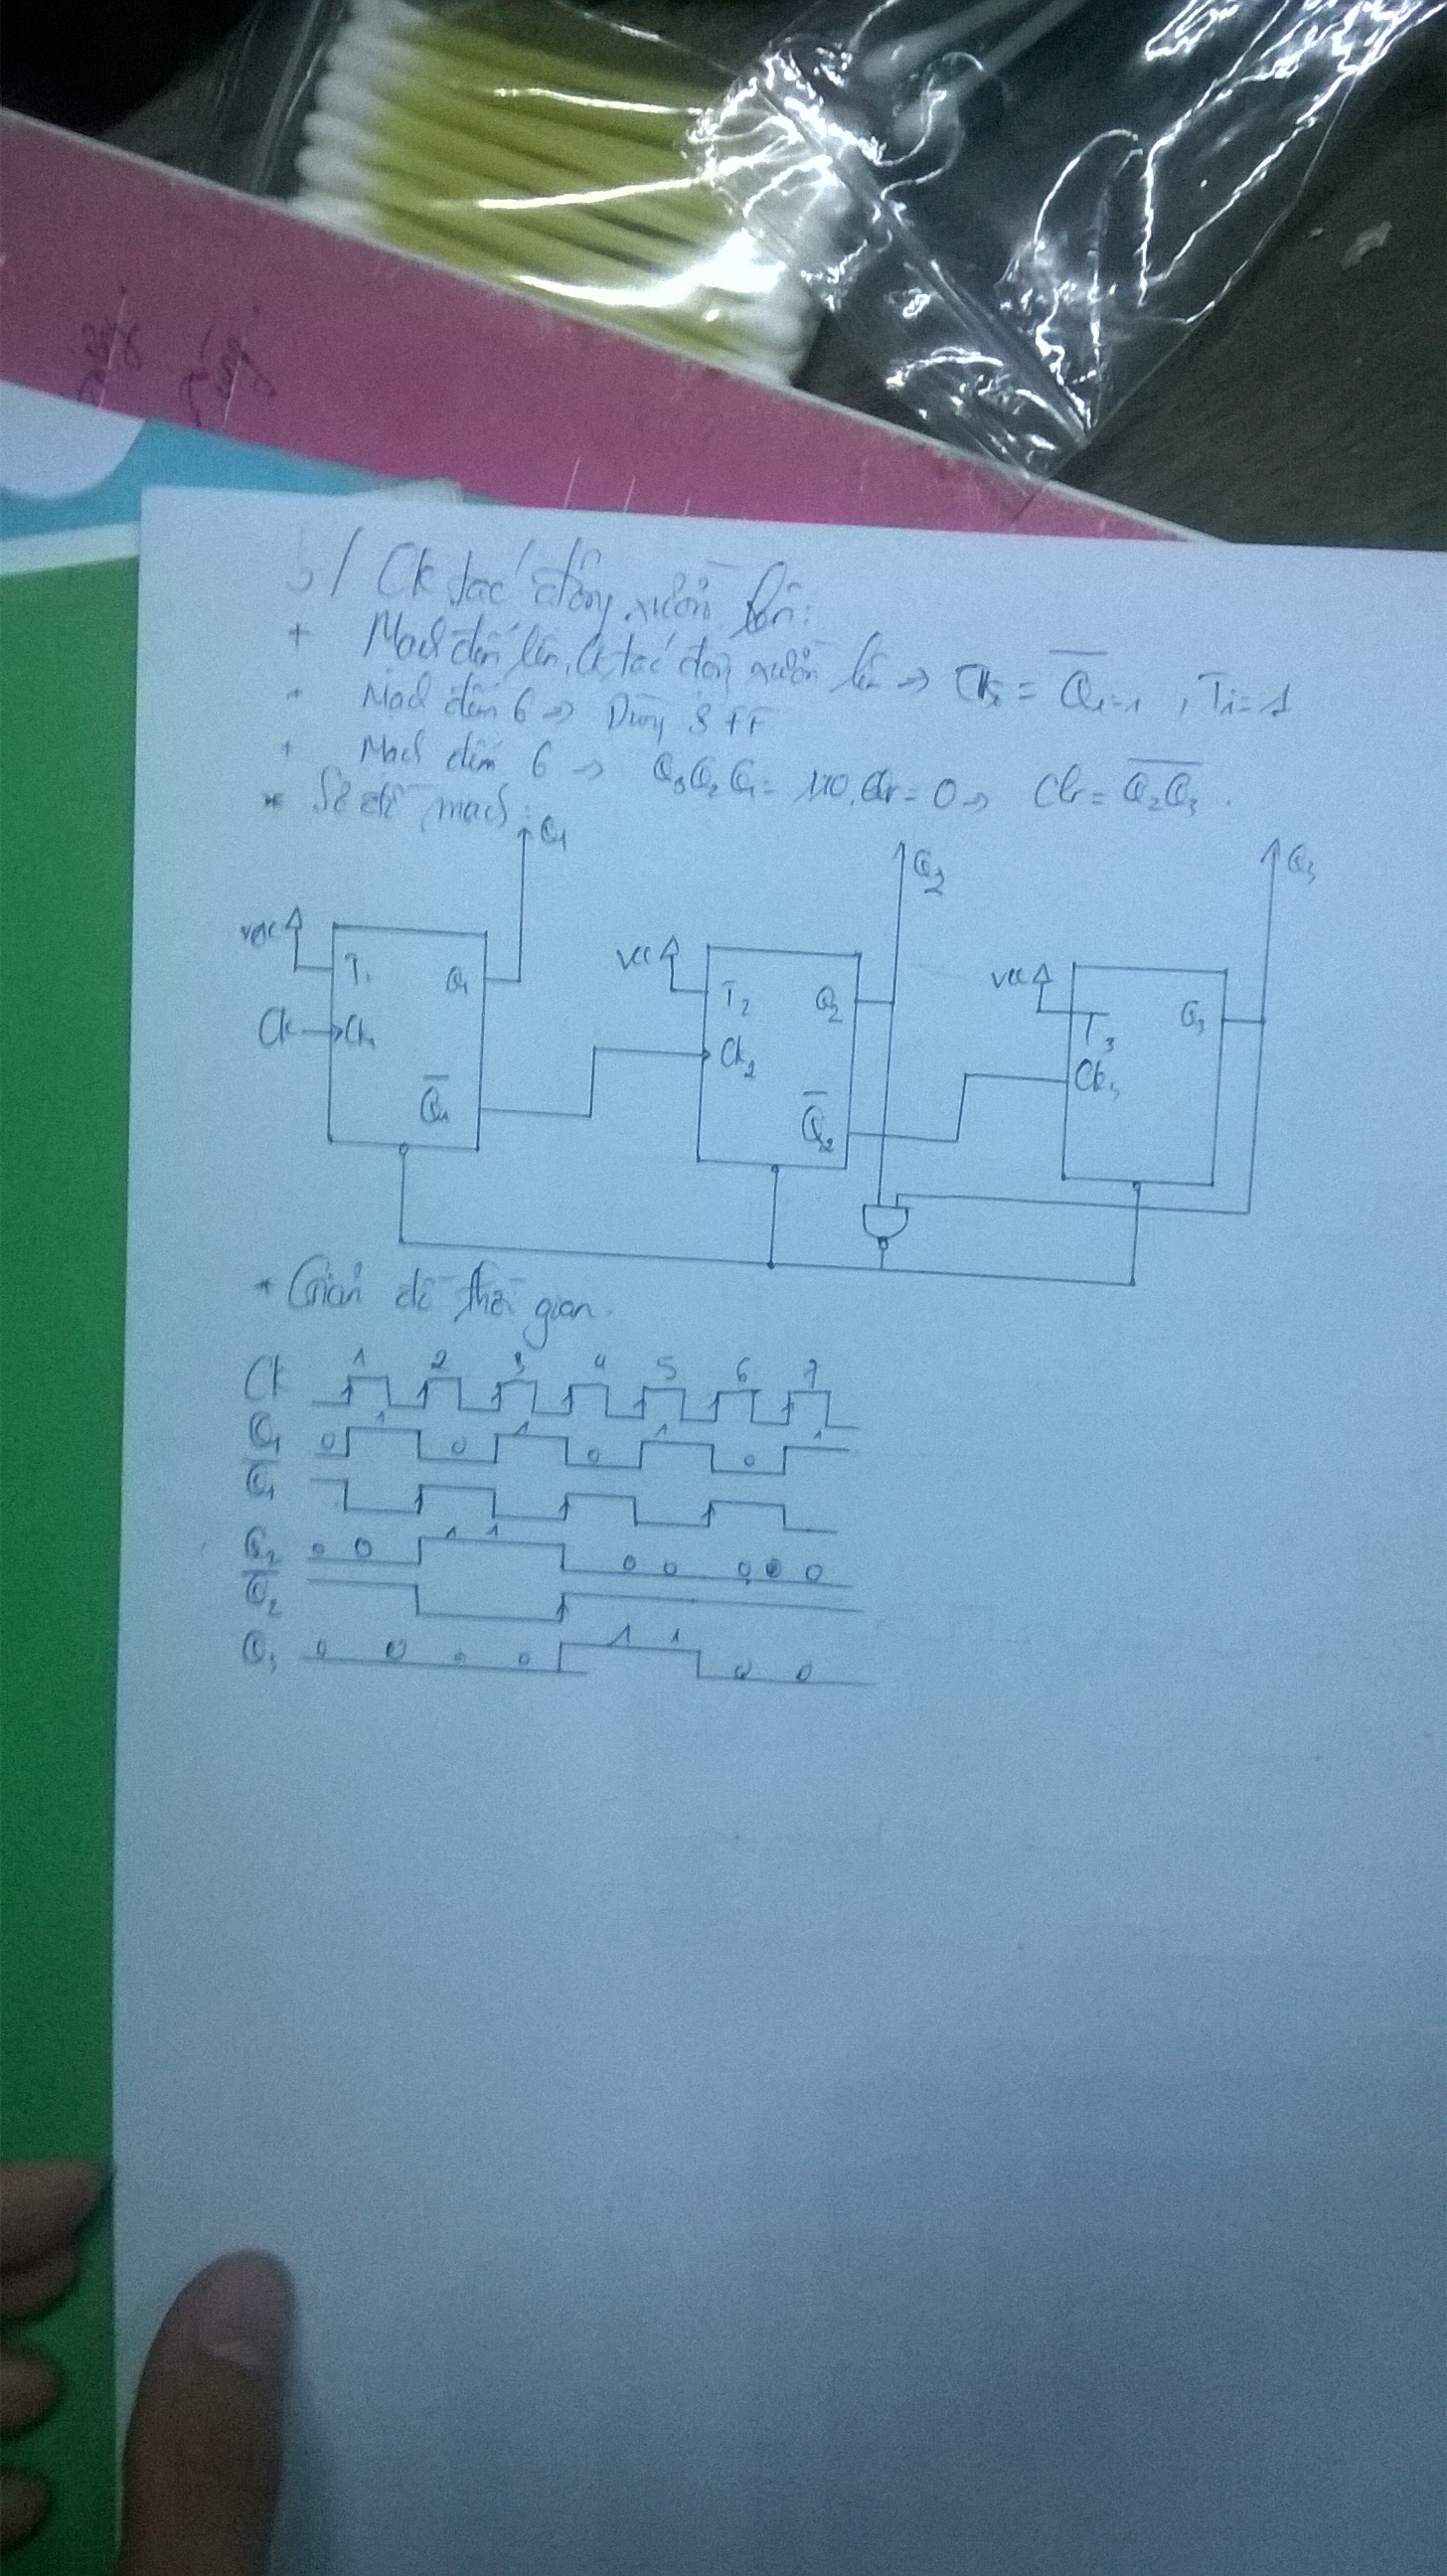 b/ Ck tác động sườn lên:
+ Mạch đếm lên, Ck tác động sườn lên => Cki = Q̅i-1, Ti = 1
+ Mạch đếm 6 => Dùng 3 FF
+ Mạch đếm 6 => Q3Q2Q1 = 110, Clr = 0 => Clr = \overline{Q2Q3}.
* Sơ đồ mạch:
Q1 Q2 Q3
Vcc Vcc Vcc
T1 Q1 T2 Q2 T3 Q3
Ck Ck1 Ck2 Ck3
Q̅1 Q̅2
* Giản đồ thời gian.
Ck 1 2 3 4 5 6 7
Q1 0 1 0 1 0 1 0 1
Q̅1
Q2 0 0 1 1 0 0 0 0 0
Q̅2
Q3 0 0 0 0 1 1 0 0